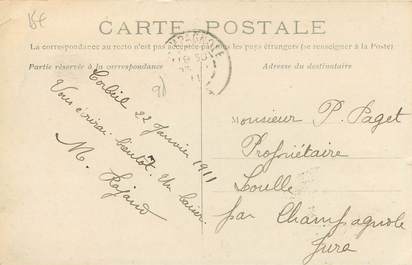 CARTE POSTALE
La correspondance au recto n'est pas acceptée par tous les pays étrangers (se renseigner à la Poste)
Partie réservée à la correspondance
Adresse du destinataire
Corbeil 22 Janvier 1911
Vous écrirai bientôt. Un baiser.
M.
Monsieur P. Paget
Propriétaire
Loulle
par Champagnole
Jura